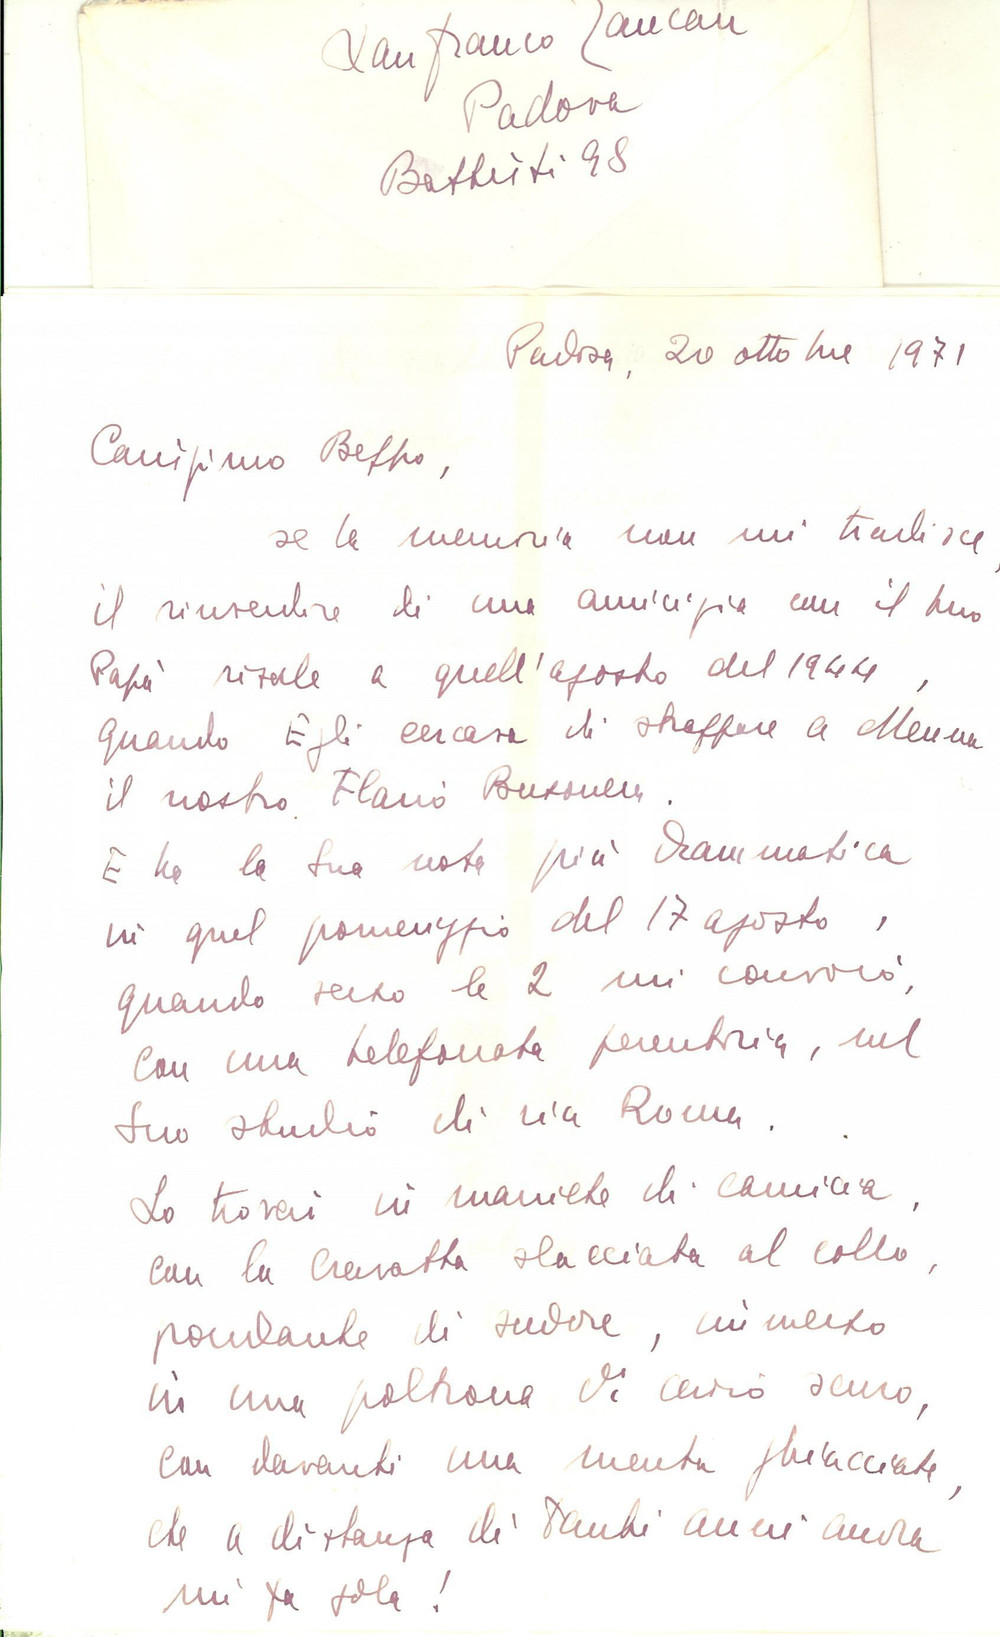 Lanfranco Zancan
Padova
Battisti 98
Padova, 20 ottobre 1971
Carissimo Beppo,
se la memoria non mi tradisce,
il rinverdire di una amicizia con il tuo
Papà risale a quell'agosto del 1944,
quando Egli cercava di strappare a Menna
il nostro Flavio Busonera.
E ha la sua nota più drammatica
in quel pomeriggio del 17 agosto,
quando verso le 2 mi convocò,
con una telefonata perentoria, nel
Suo studio di via Roma.
Lo trovai in maniche di camicia,
con la cravatta slacciata al collo,
grondante di sudore, immerso
in una poltrona di cuoio scuro,
con davanti una menta ghiacciata,
che a distanza di tanti anni ancora
mi fa gola!